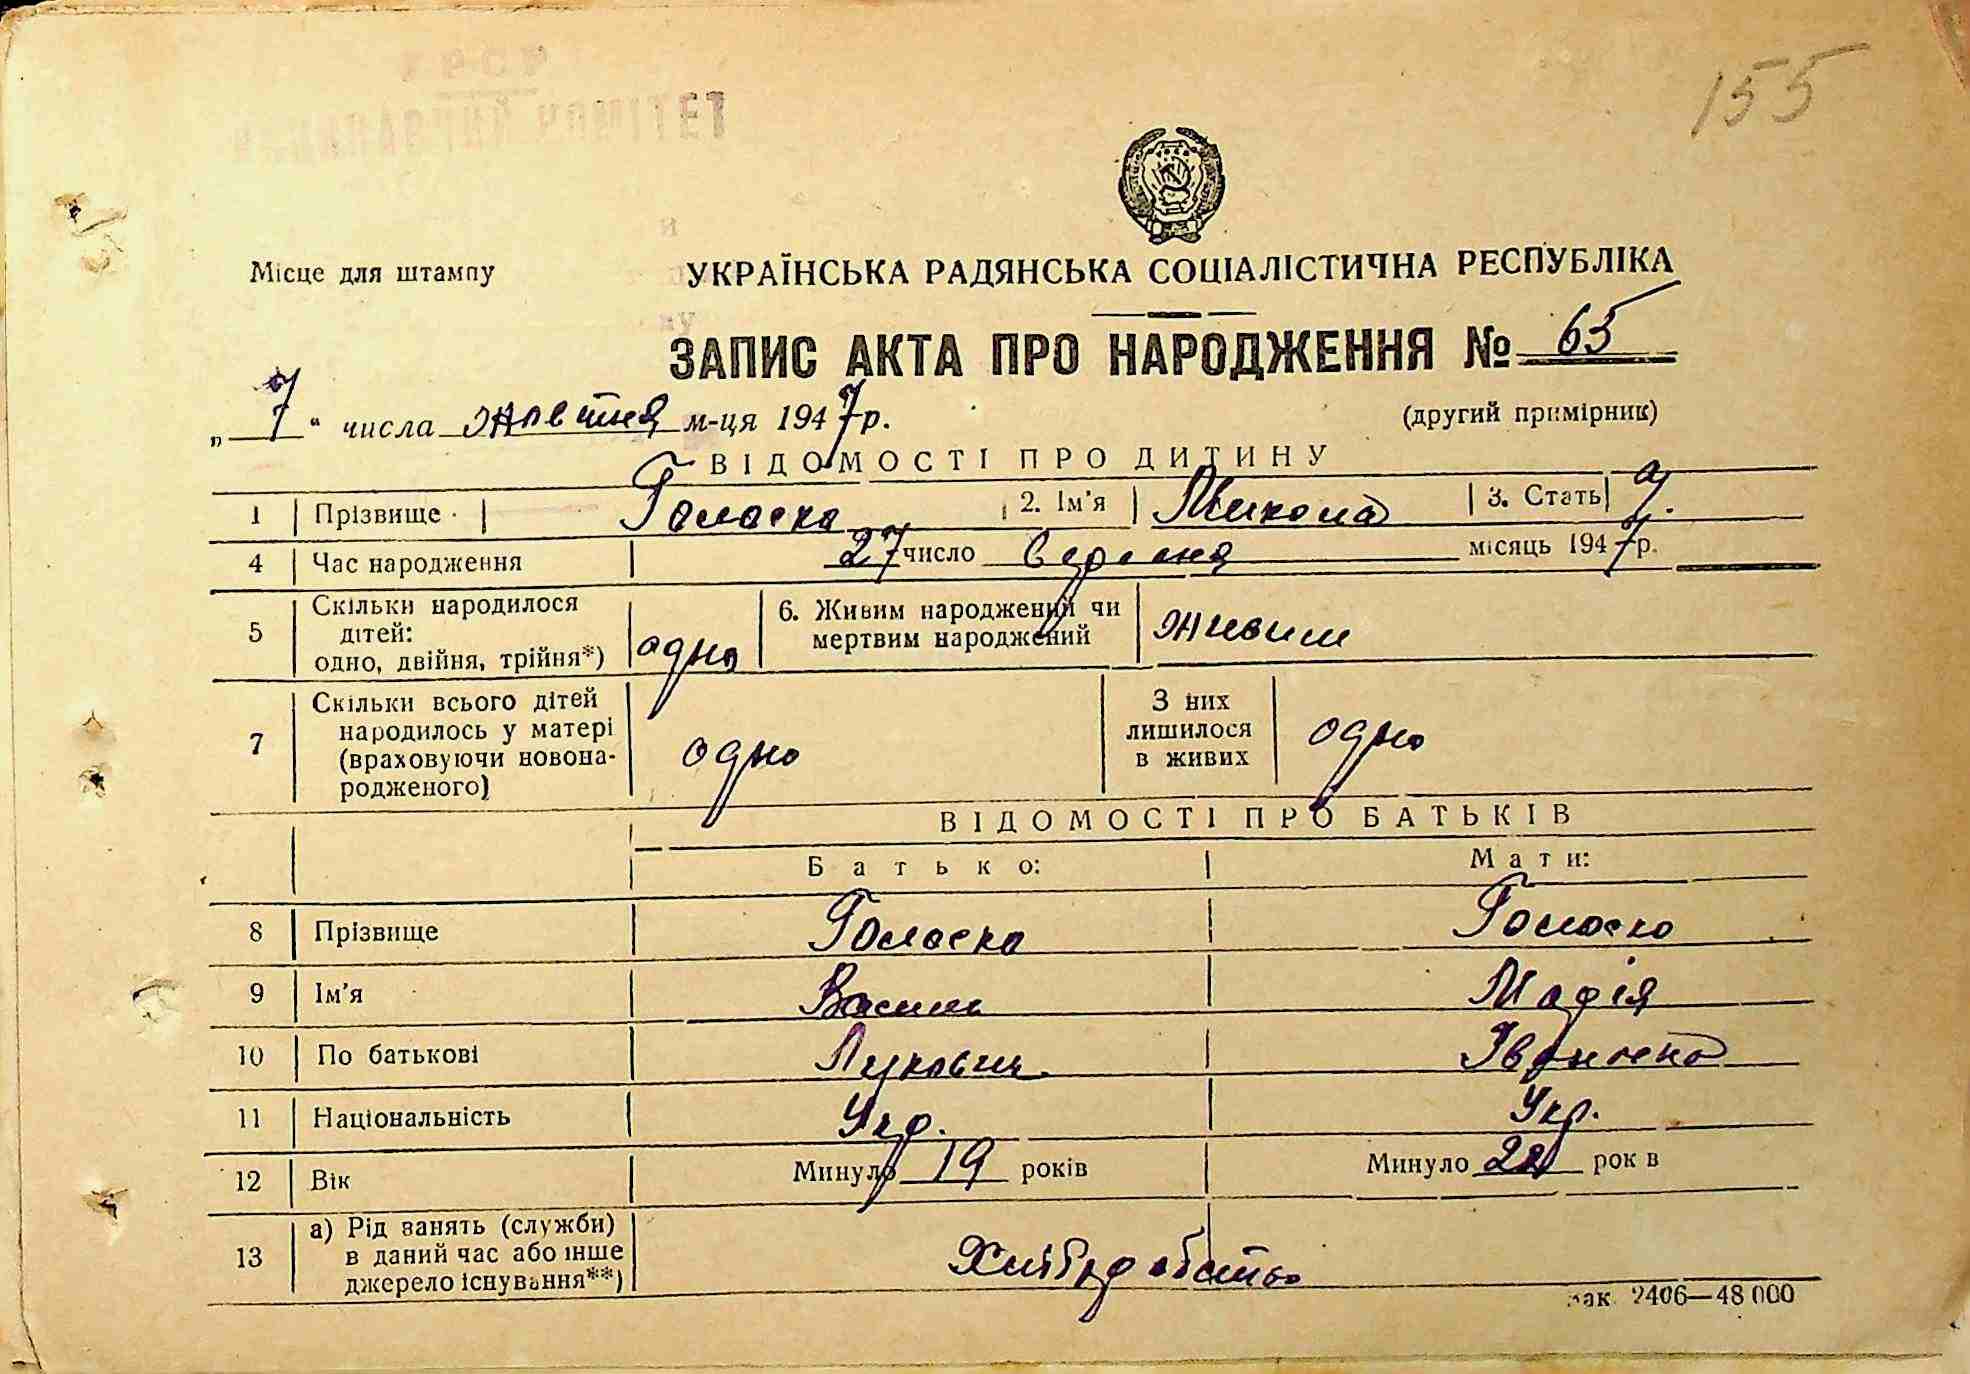 УРСР
ВИКОНАВЧИЙ КОМІТЕТ
155
Місце для штампу
УКРАЇНСЬКА РАДЯНСЬКА СОЦІАЛІСТИЧНА РЕСПУБЛІКА
ЗАПИС АКТА ПРО НАРОДЖЕННЯ № 65
„ 7 “ числа жовтня м-ця 1947 р.
(другий примірник)
ВІДОМОСТІ ПРО ДИТИНУ
1 Прізвище Голоска 2. Ім'я Микола 3. Стать ч.
4 Час народження 27 число вересня місяць 1947 р.
5 Скільки народилося дітей: одно, двійня, трійня*) одно 6. Живим народжений чи мертвим народжений живим
7 Скільки всього дітей народилось у матері (враховуючи новонародженого) одно З них лишилося в живих одно
ВІДОМОСТІ ПРО БАТЬКІВ
Батько: Мати:
8 Прізвище Голоско Голоско
9 Ім'я Василь Марія
10 По батькові Лукович Івановна
11 Національність Укр. Укр.
12 Вік Минуло 19 років Минуло 22 рок в
13 а) Рід занять (служби) в даний час або інше джерело існування**) Хліборобство
Зак. 2406—48 000